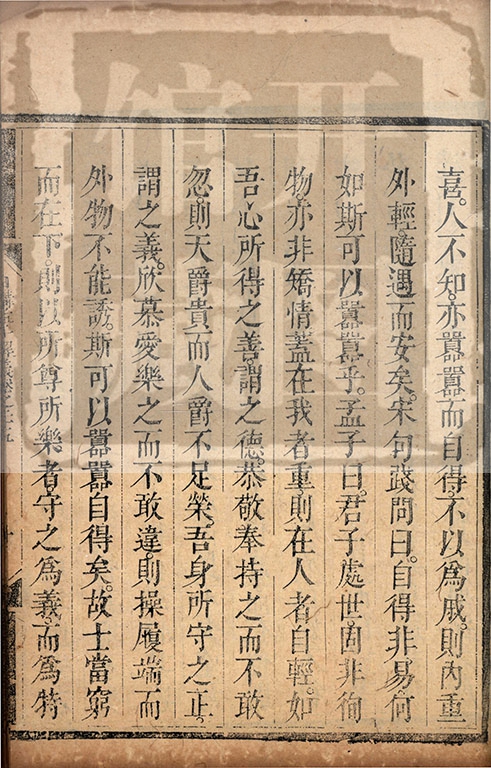 喜。人不知。亦囂囂而自得。不以爲戚。則內重
外輕。隨遇而安矣。宋句踐問曰。自得非易。何
如斯可以囂囂乎。孟子曰。君子處世。固非徇
物。亦非矯情。蓋在我者重。則在人者自輕。如
吾心所得之善。謂之德。恭敬奉持之而不敢
忽。則天爵貴而人爵不足榮。吾身所守之正。
謂之義。欣慕愛樂之而不敢違。則操履端而
外物不能誘。斯可以囂囂自得矣。故士當窮
而在下。則以所尊所樂者。守之爲義。而爲特